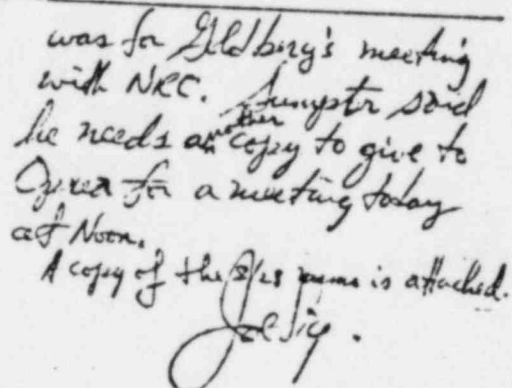 was for Goldberg's meeting
with NRC. Sumpter said
he needs another copy to give to
Oprea for a meeting today
at Noon.
A copy of the memo is attached.